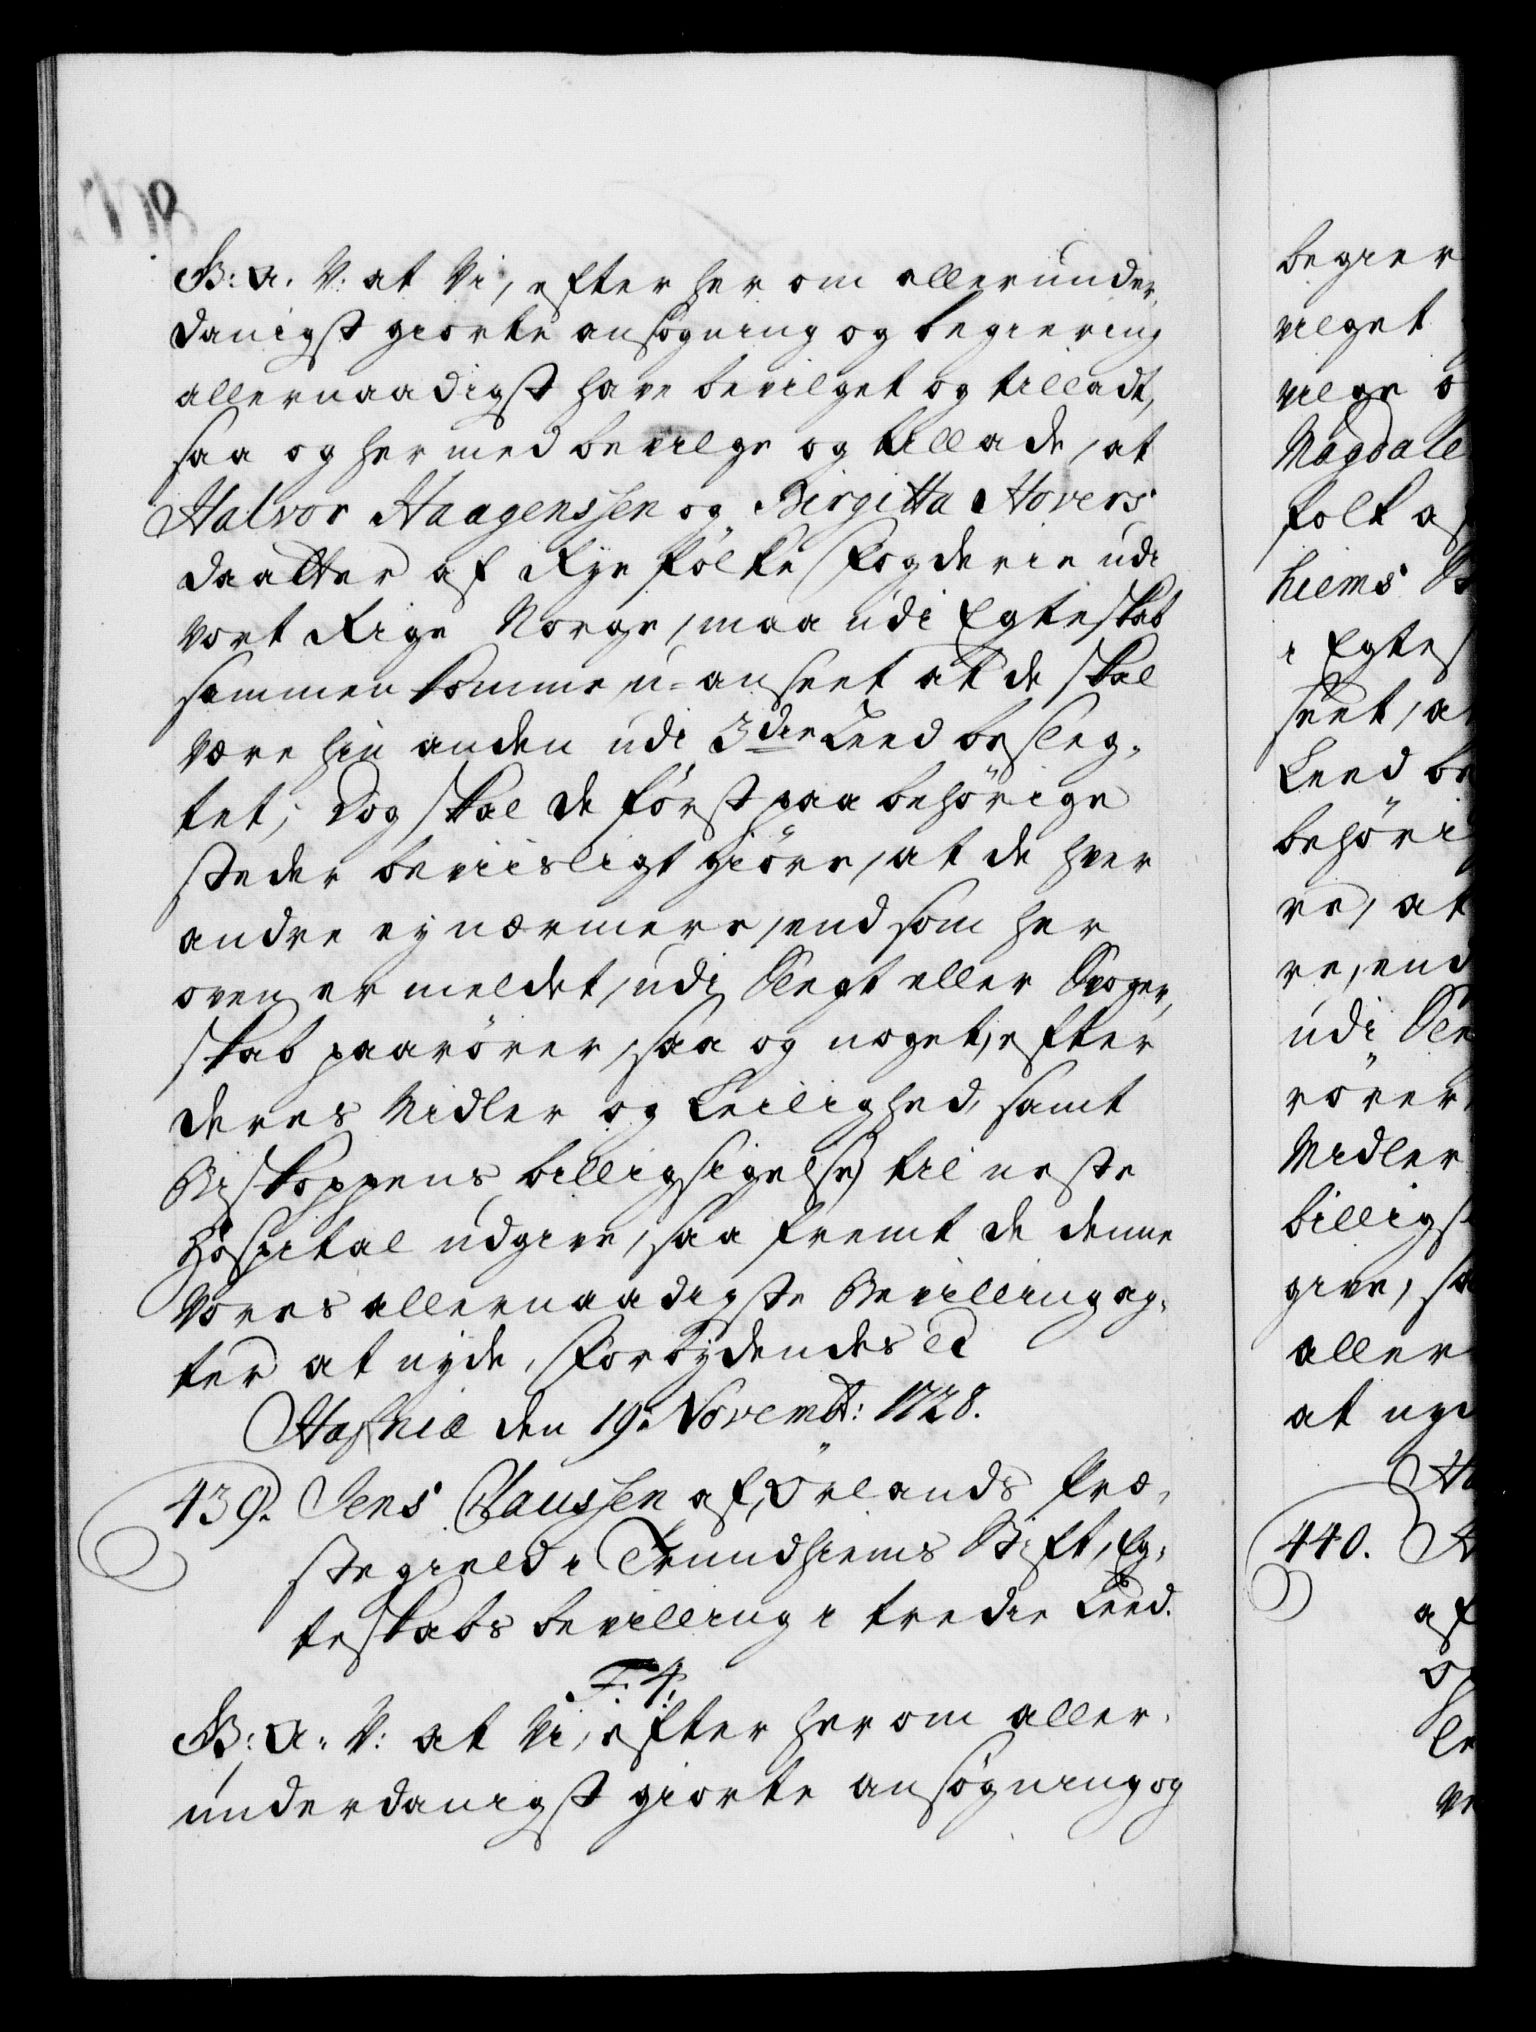 G: A: V: at Vi, efter her om allerunder,
danigst giorte ansøgning og begiering
allernaadigst have bevilget og tilladt,
saa og hermed bevilge og tillade, at
Halvor Haagenssen og Birgitta Hovers
daatter af Rye fölke Fogderie udi
vort Rige Norge, maa udi Egteskab
sammenkomme, u-anseet at de skal
være hin anden udi 3die Leed besleg,
tet; Dog skal de först paa behörige
steder beviisligt giöre, at de hver
andre ey nærmere, end som her
oven er meldet, udi Slegt eller Svoger,
skab paarörer, saa og noget, efter
deres Midler og Leilighed, samt
Biskoppens billigsigelse, til neste
Hospital udgive, saa fremt de denne
Vores allernaadigste Bevilling ag,
ter at nyde, Forbydendes etc
Hafniæ den 19. Novembr: 1728.
439. Jens Claussen af Örlands Præ,
stegield i Trundhiems Stift, Eg,
teskabs bevilling i tredie Leed.
F. 4.
G: A: V: at Vi, efter herom aller,
underdanigst giorte ansøgning og
begier
vilget
vilge o
Magdale
folk af
hiems St
i Egtes
seet, at
Leed be
behöri
re, at
re, end
udi Sle
rörer
Midler
billigs
give, sa
aller
at nyd
440.
af